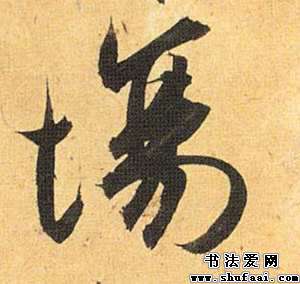 場
书法爱网
www.shufaai.com